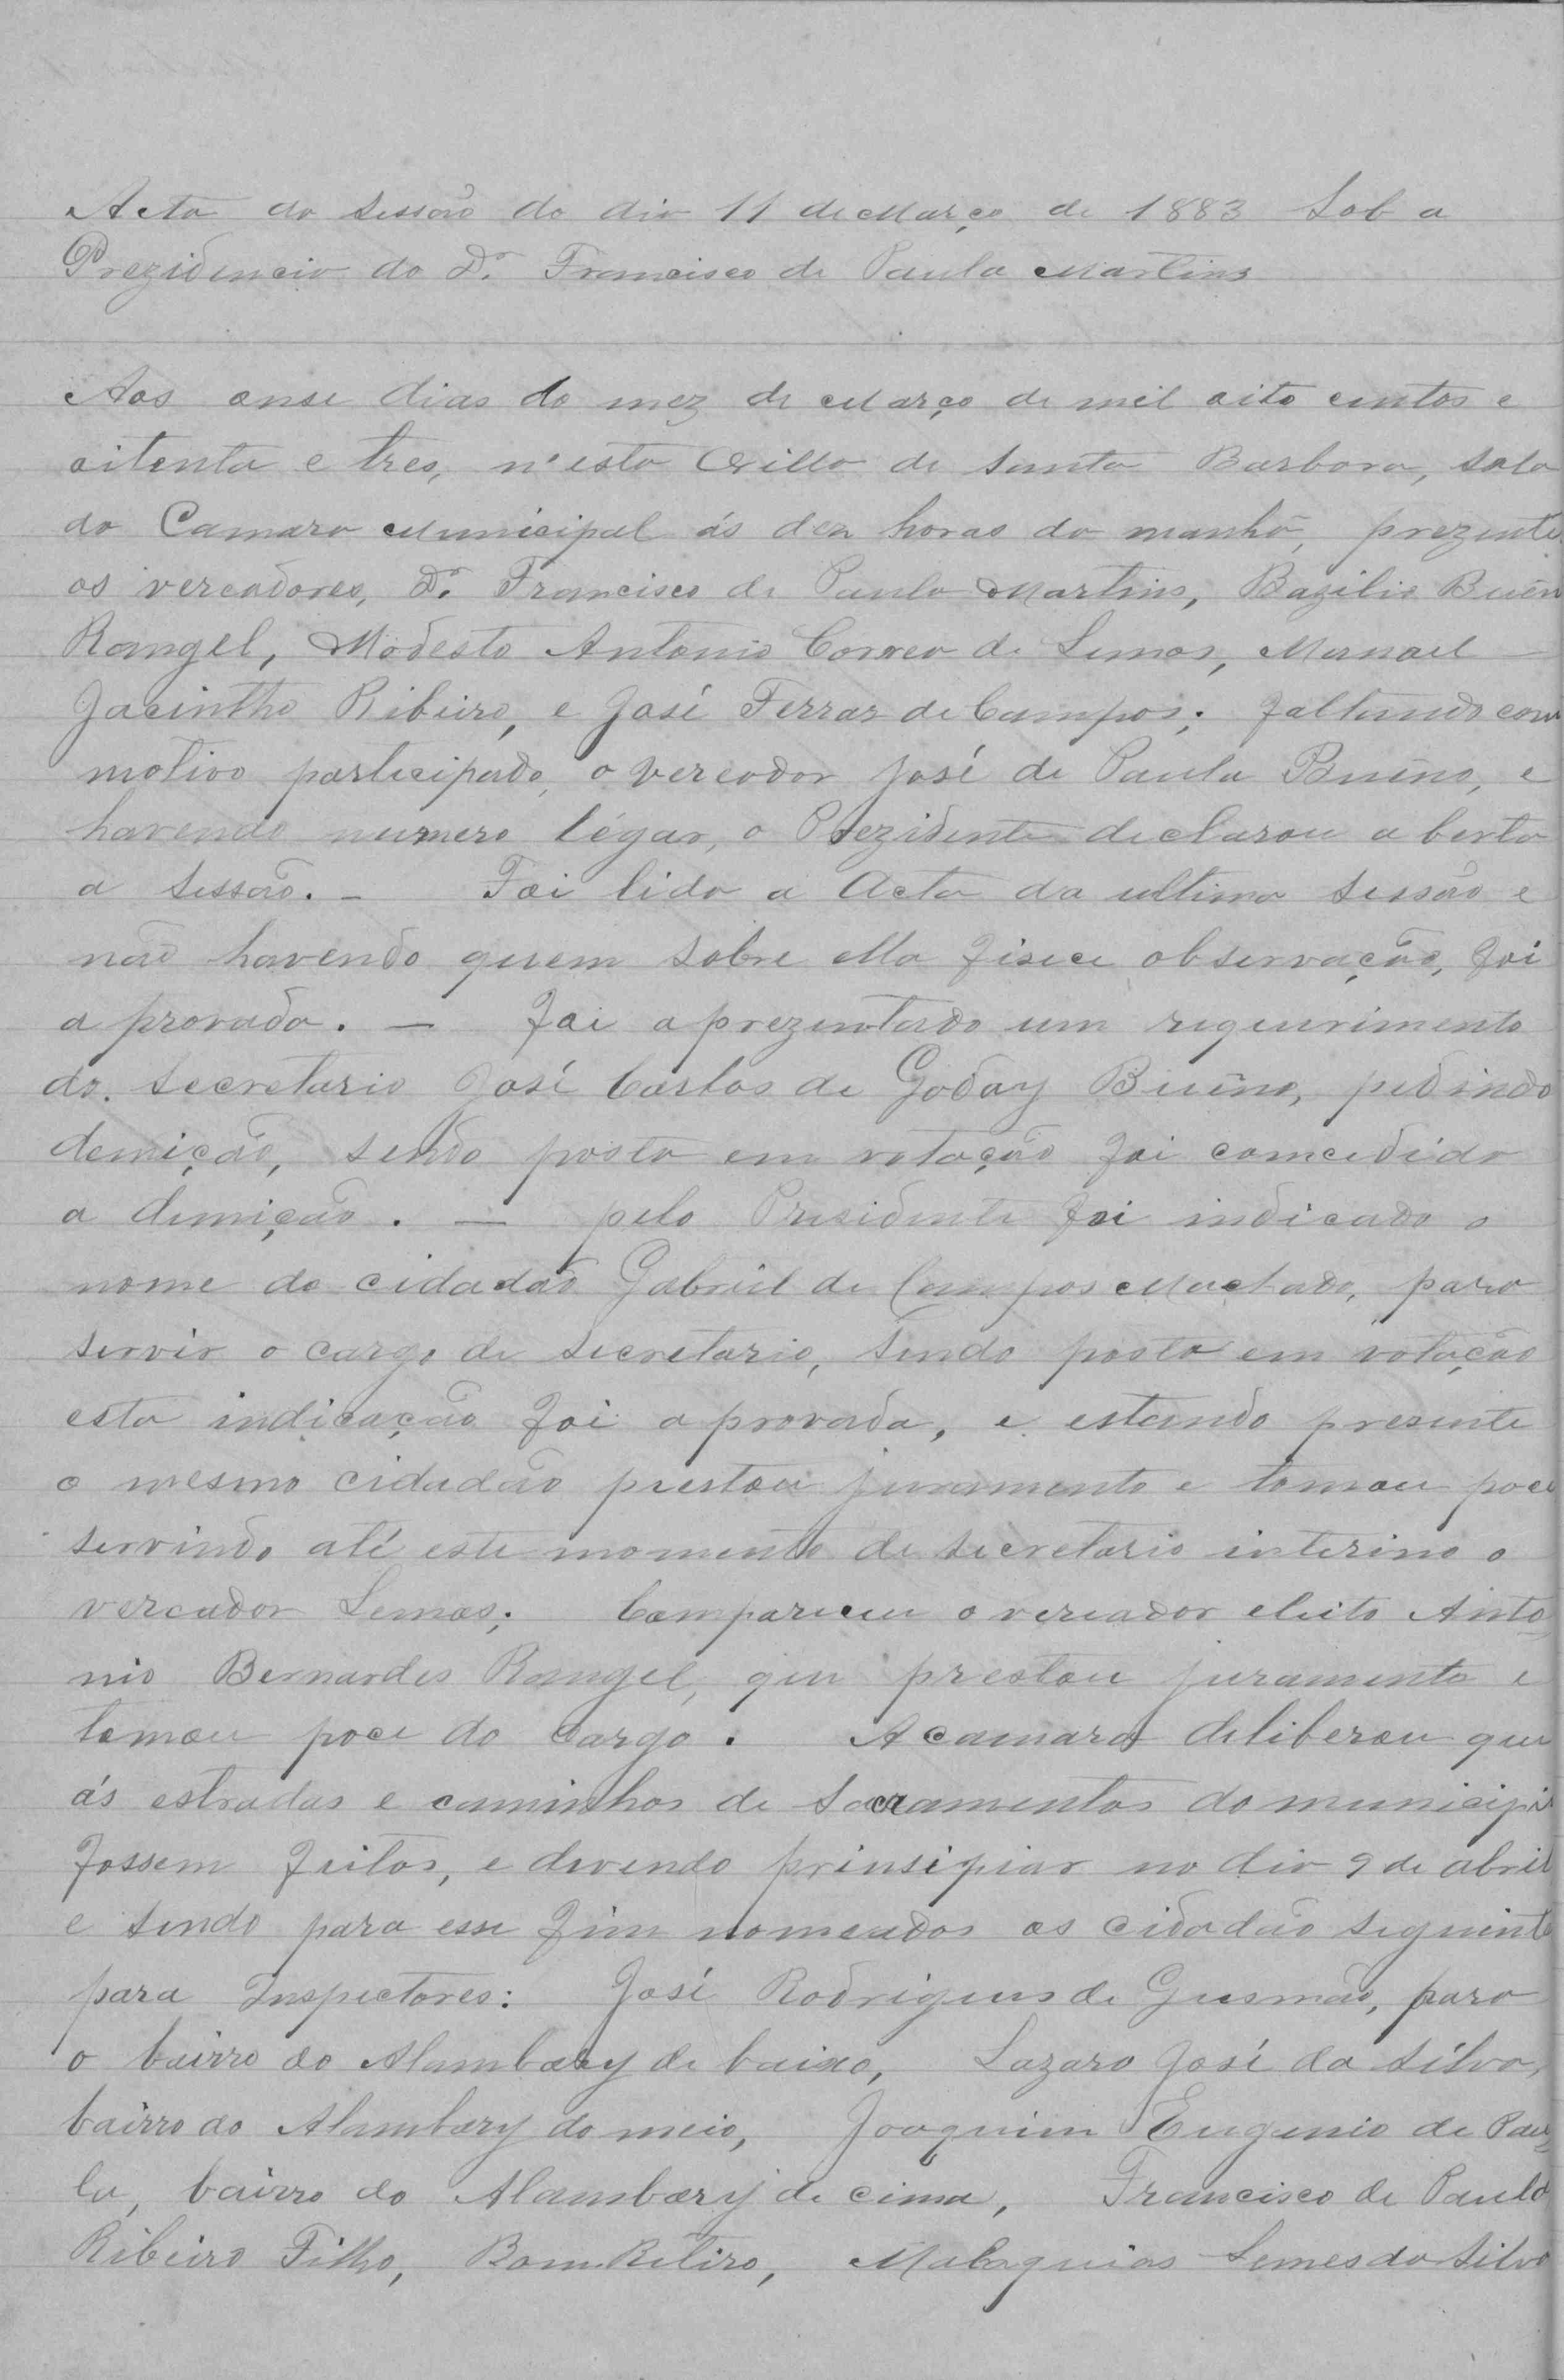 Acta da sessão do dia 11 de Março de 1883 Sob a
Prezidencia do Dr. Francisco de Paula Martins
Aos onse dias do mez de Março de mil oito centos e
oitenta e tres, n'esta Villa de Santa Barbara, sala
da Camara Municipal ás dez horas da manhã, prezente
os vereadores, Dr. Francisco de Paula Martins, Bazilio Buen
Rangel, Modesto Antonio Correa de Lemos, Manoel
Jacintho Ribeiro, e José Ferraz de Campos; faltando com
motivo participado, o vereador José de Paula Bueno, e
havendo numero légar, o Prezidente declarou a berta
a sessão. - Foi lida a Acta da ultima sessão e
não havendo quem sobre ella fisece observação, foi
a provada. — Foi aprezentado um requirimento
do. secretario José Carlos de Godoy Bueno, pedindo
demição, sendo posto em votação foi comcedida
a demição. — pelo Presidente foi indicado o
nome do cidadão Gabriel de Campos Machado, para
servir o cargo de secretario, sendo posta em votação
esta indicação foi a provada, e estando presente
o mesmo cidadão prestou juramento e tomou poce
servindo até este momento de secretario interino o
vereador Lemos; Compareceu o vereador eleito Anto
nio Bernardes Rangel, que prestou juramento e
tomou poce do cargo. A camara deliberou que
ás estradas e caminhos de Sacramentos do municipi
fossem feitos, e devendo prinsipiar no dia 9 de abril
e sendo para esse fim nomeados os cidadão seguinte
para Inspectores: José Rodrigues de Gusmão, para
o bairro do Alambary de baixo, Lazaro José da Silva,
bairro do Alambary do meio, Joaquim Eugenio de Pau
la, bairro do Alambary de cima, Francisco de Paula
Ribeiro Filho, Bom Retiro, Malaquias Lemes da Silva